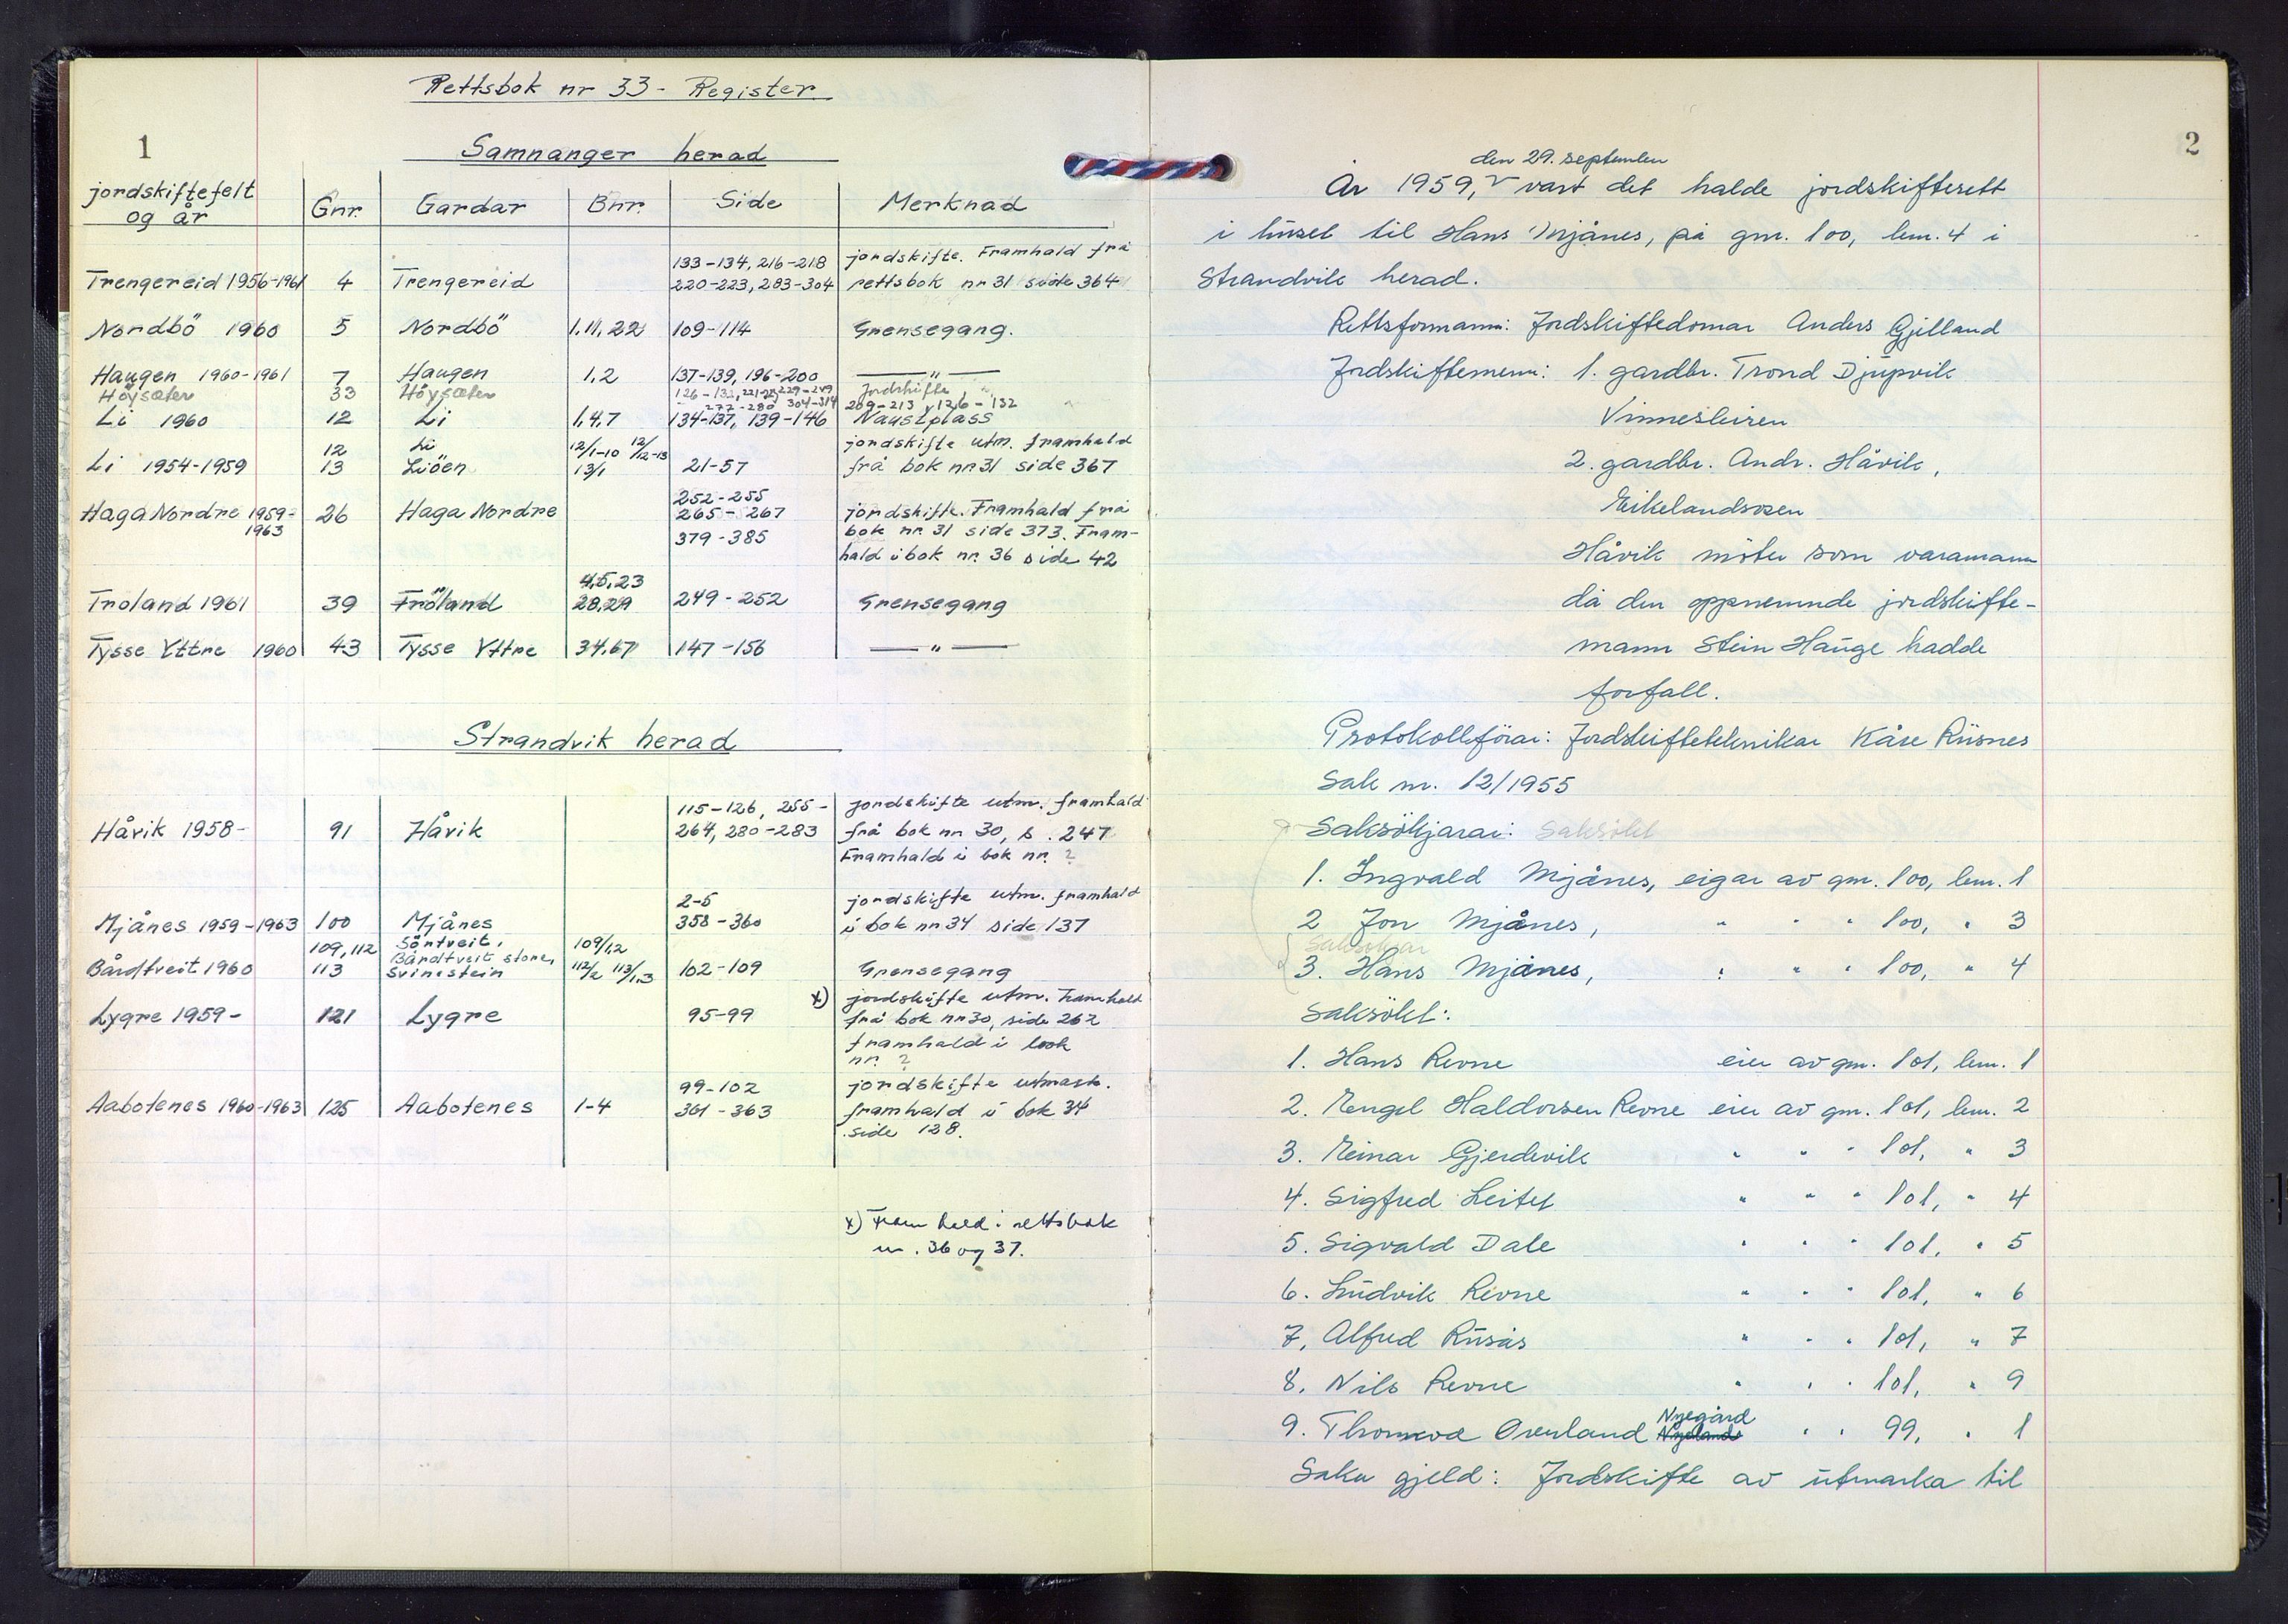 Rettsbok nr 33 - Register
1
Samnanger herad
jordskiftefelt og år | Gnr. | Gardar | Bnr. | Side | Merknad
Trengereid 1956-1961 | 4 | Trengereid | | 133-134, 216-218 220-223, 283-304 | jordskifte. Framhald frå rettsbok nr 31 side 364
Nordbö 1960 | 5 | Nordbö | 1, 11, 22 | 109-114 | Grensegang.
Haugen 1960-1961 | 7 | Haugen | 1, 2 | 137-139, 196-200 | — " —
Höysæter | 33 | Höysæter | | 126-132, 229-249 277-280 304-314 | Jordskifte 209-213, 126-132
Li 1960 | 12 | Li | 1, 4, 7 | 134-137, 139-146 | Naustplass
Li 1954-1959 | 12 13 | Li Liöen | 12/1-10 12/12-13 13/1 | 21-57 | jordskifte utm. framhald frå bok nr 31 side 367
Haga Nordre 1959-1963 | 26 | Haga Nordre | | 252-255 265-267 379-385 | jordskifte. Framhald frå bok nr. 31 side 373. Fram-hald i bok nr. 36 side 42
Troland 1961 | 39 | Fröland | 4, 5, 23 28, 29 | 249-252 | Grensegang
Tysse Yttre 1960 | 43 | Tysse Yttre | 34, 67 | 147-156 | — " —
Strandvik herad
Håvik 1958- | 91 | Håvik | | 115-126, 255-264, 280-283 | jordskifte utm. framhald frå bok nr 30, s. 247 Framhald i bok nr. ?
Mjånes 1959-1963 | 100 | Mjånes | | 2-5 358-360 | jordskifte utm. framhald i bok nr 34 side 137
Bårdtveit 1960 | 109, 112 113 | Söntveit, Bårdtveit store, Svinestein | 109/1,2 112/2 113/1,3 | 102-109 | Grensegang
Lygre 1959- | 121 | Lygre | | 95-99 | x) jordskifte utm. Framhald frå bok nr 30, side 262 framhald i bok nr. ?
Aabotenes 1960-1963 | 125 | Aabotenes | 1-4 | 99-102 361-363 | jordskifte utmark. framhald i bok 34 side 128.
x) Framhald i rettsbok
nr. 36 og 37.
2
den 29. september
År 1959, vart det halde jordskifterett
i huset til Hans Mjånes, på gnr. 100, bnr. 4 i
Strandvik herad.
Rettsformann: Jordskiftedomar Anders Gjelland
Jordskiftemenn: 1. gardbr. Trond Djupvik
Vinnesleiren
2. gardbr. Andr. Håvik,
Eikelandsosen
Håvik möter som varamann
då den oppnemnde jordskifte-
mann Stein Hauge hadde
forfall.
Protokollförar: Jordskifteteknikar Kåre Risnes
Sak nr. 12/1955
Saksökjarar: Saksökt
1. Ingvald Mjånes, eigar av gnr. 100, bnr. 1
2 Jon Mjånes, " " " 100, " 3
Saksökjar
3. Hans Mjånes, " " " 100, " 4
Saksökt:
1. Hans Revne eier av gnr. 101, bnr. 1
2. Engel Haldorsen Revne eier av gnr. 101, bnr. 2
3. Einar Gjerdevik " " " 101, " 3
4. Sigfred Leitet " " " 101, " 4
5. Sigvald Dale " " " 101, " 5
6. Ludvik Revne " " " 101, " 6
7. Alfred Risås " " " 101, " 7
8. Nils Revne " " " 101, " 9
9. Thomvoe Overland Nyegård " " 99, " 1
Saka gjeld: Jordskifte av utmarka til